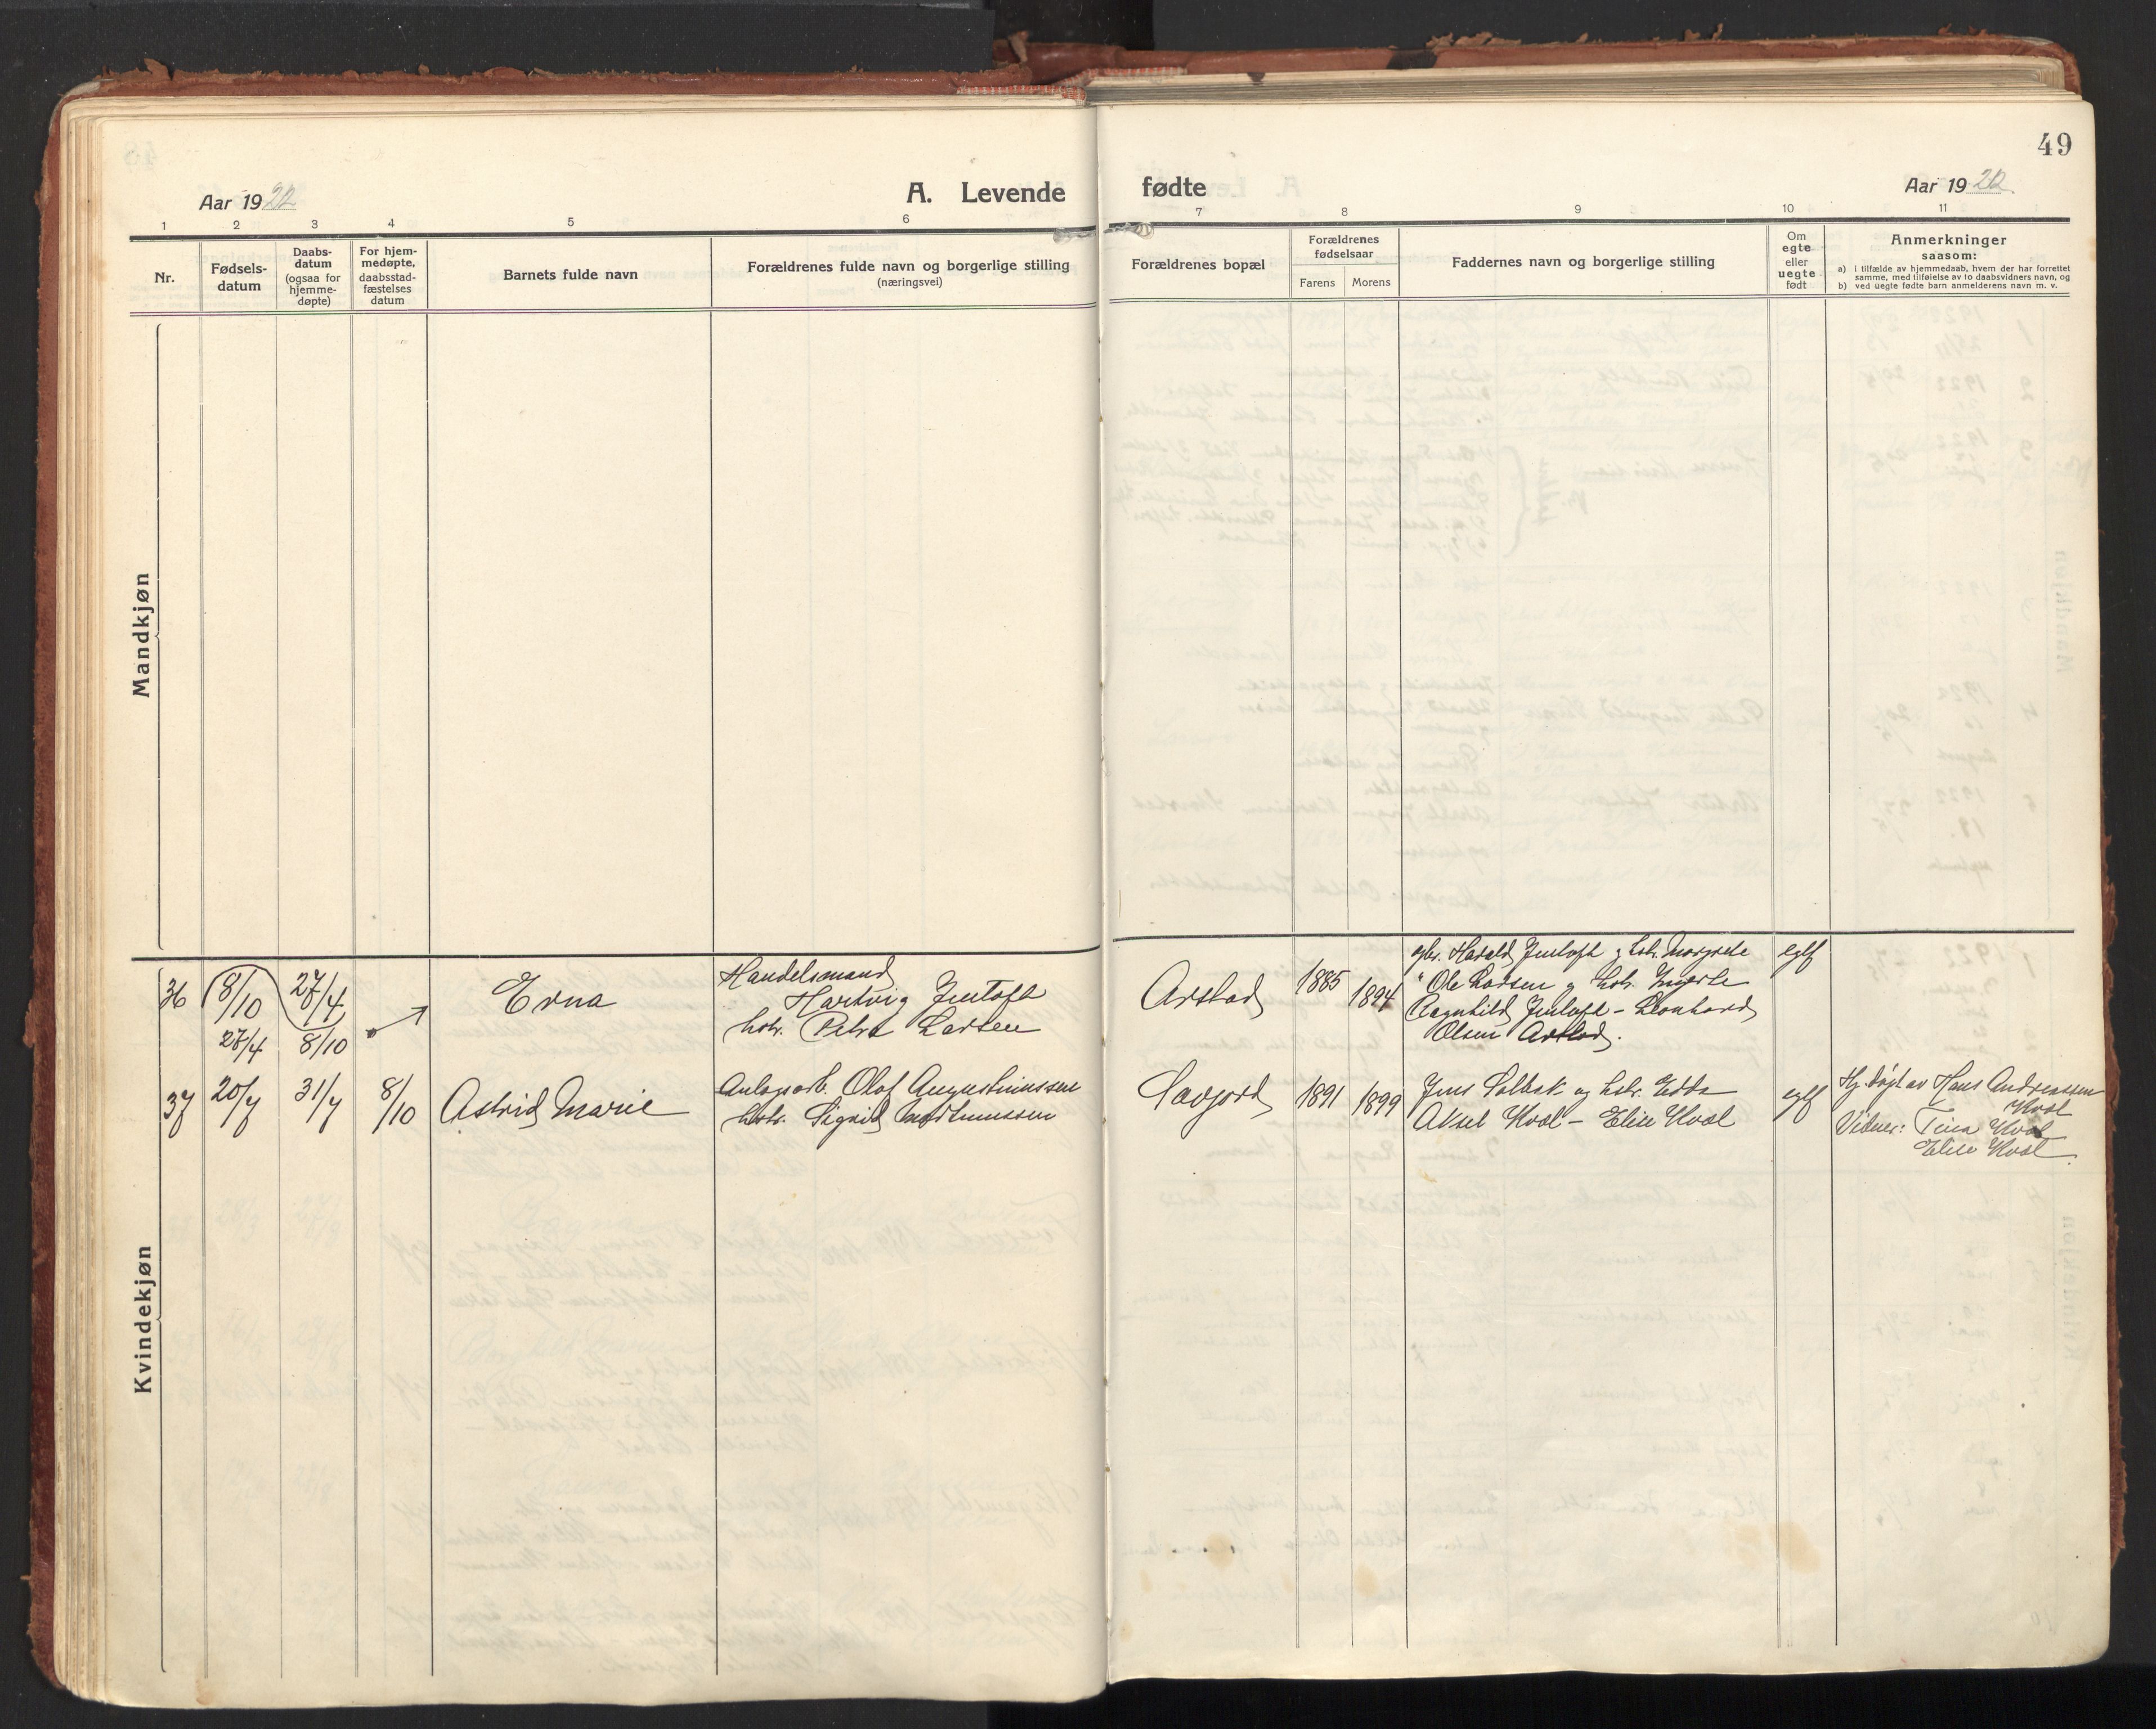 49
Aar 1922
A. Levende fødte
Aar 1922
1 2 3 4 5 6 7 8 9 10 11
Nr.
Fødsels-
datum
Daabs-
datum
(ogsaa for
hjemme-
døpte)
For hjem-
medøpte,
daabsstad-
fæstelses
datum
Barnets fulde navn
Forældrenes fulde navn og borgerlige stilling
(næringsvei)
Forældrenes bopæl
Forældrenes
fødselsaar
Farens Morens
Faddernes navn og borgerlige stilling
Om
egte
eller
uegte
født
Anmerkninger
saasom:
a) i tilfælde av hjemmedaab, hvem der har forrettet
samme, med tilføielse av to daabsvidners navn, og
b) ved uegte fødte barn anmelderens navn m. v.
Mandkjøn
Kvindekjøn
36 8/10 27/4
27/4 8/10
Erna
Handelsmand
Hartvig Jentoft
hstr. Petra Larsen
Arstad
1885 1894
gbr. Harald Jentoft og hstr. Margrete
" Ole Larsen og hstr.
Ragnhild Jentoft - Leonhard
Olsen Arstad.
egtf
37 20/7 31/7 8/10
Astrid Marie
Anlegsarb. Olaf Augustinussen
hstr. Sigrid
1891 1899
Jens Solbak og hstr. Edda
Aksel Hval - Elise Hval
egtf
Hj. døpt av Hans Andreassen
Hval
Vidner: Tina Hval
Elise Hval.